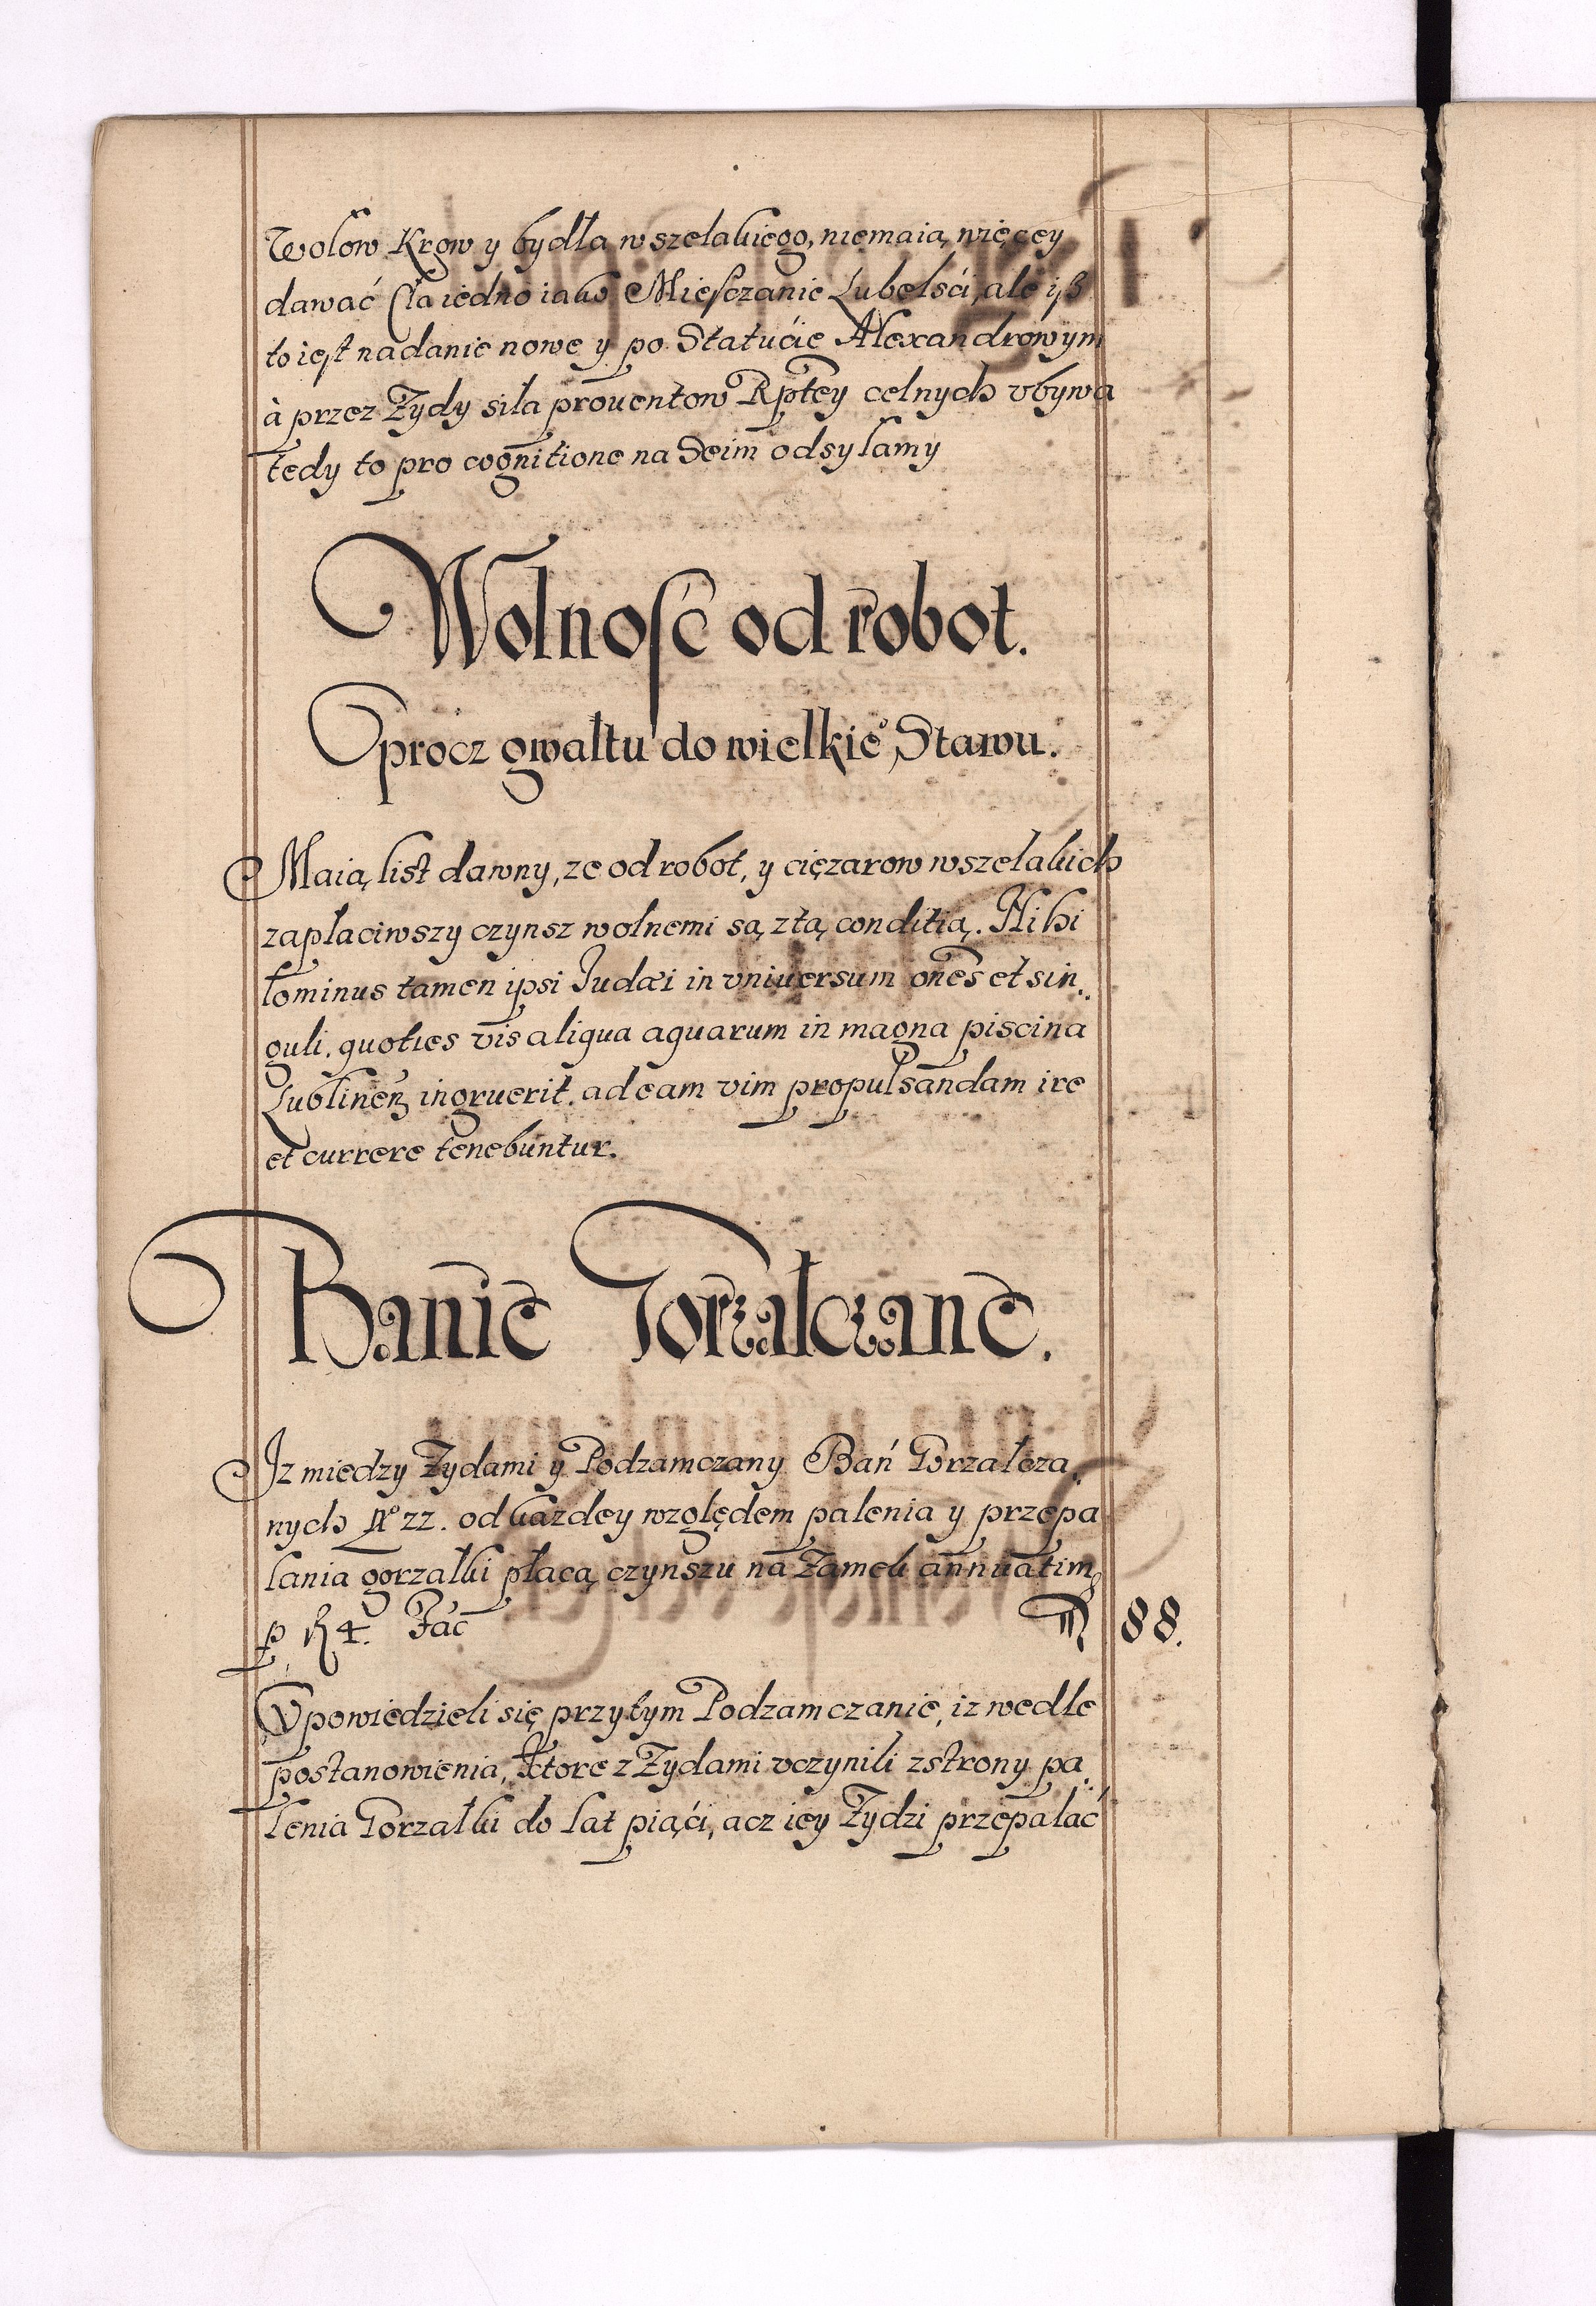 Wolow Krow y bydła wszelakiego, niemaią więcey
dawać Cła iedno iako Miesczanie Lubelsći, ale iſz
to ieſt nadanie nowe y po Statućie Alexandrowym
à przez Żydy siła prouentow Rptey celnych vbywa
tedy to pro cognitione na Seim odsyłamy
Wolnoſć od robot.
Oprocz gwałtu do wielkieº Stawu.
Maią list dawny, ze od robot, y cięzarow wszelakich
zapłaciwszy czynsz wolnemi są, z tą conditią. Nihi
lominus tamen ipsi Judæi in vniuersum oñes et sin..
guli, quoties vis aliqua aquarum in magna piscina
Lublineñ ingruerit, ad eam vim propulsandam ire
et currere tenebuntur.
Banie Gorzałczane.
Jz miedzy Żydami y Podzamczany Bań Gorzałcza..
nych Nº 22. od kazdey względem palenia y przepa
lania gorzałki płacą czynszu na Zamek annuatim
p fl 4. Fać fl 88.
Vpowiedzieli się przytym Podzamczanie, iz wedle
postanowienia, ktore z Żydami vczynili z strony pa..
lenia Gorzałki do lat piąći, acz iey Żydzi przepalać